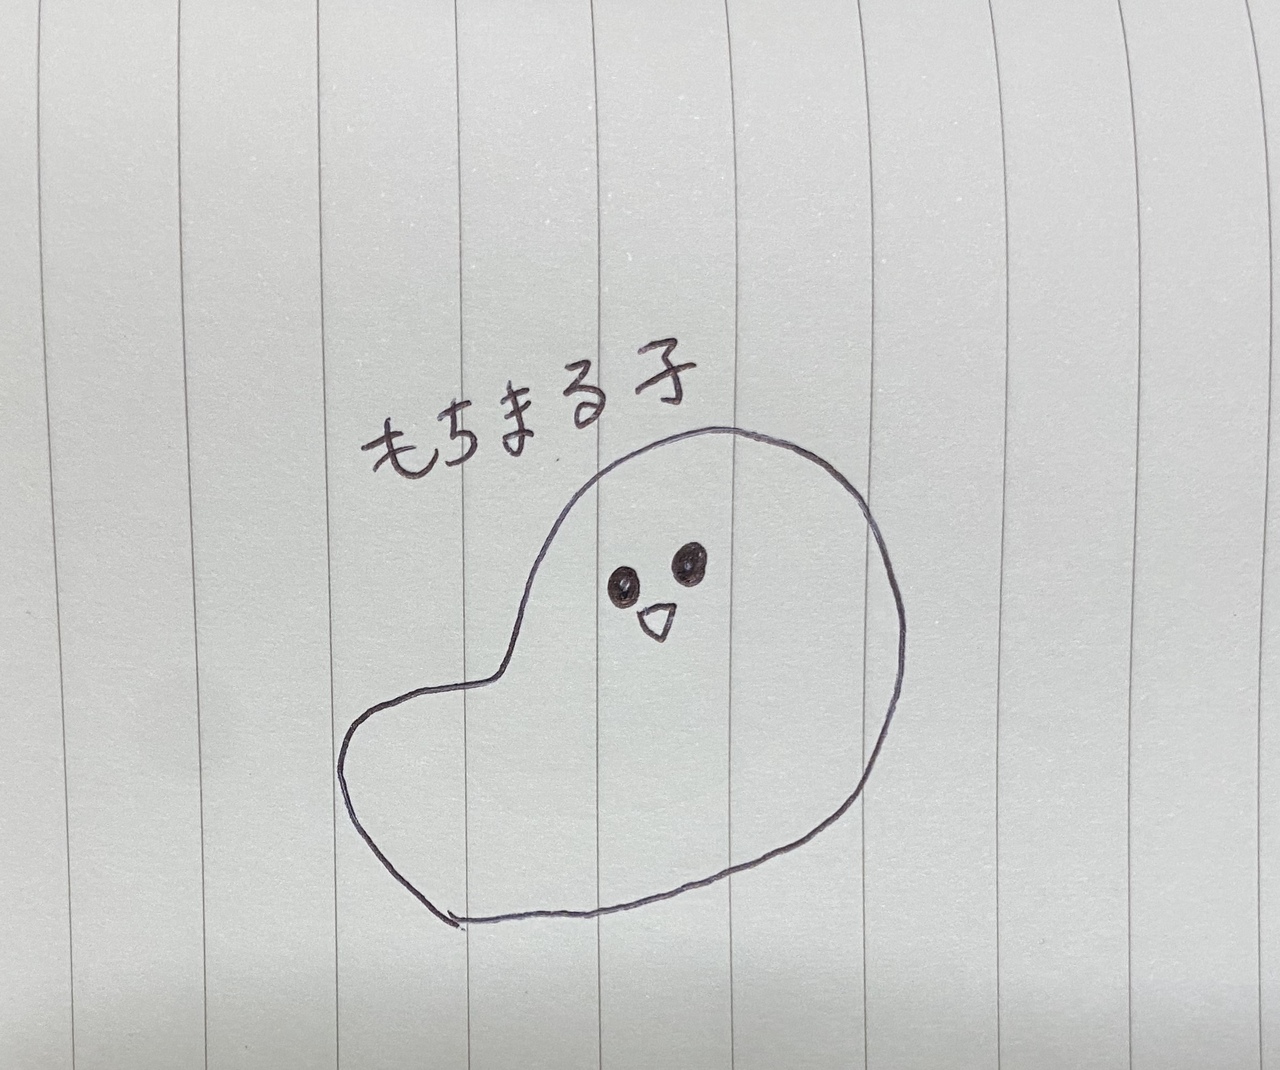 もちまる子